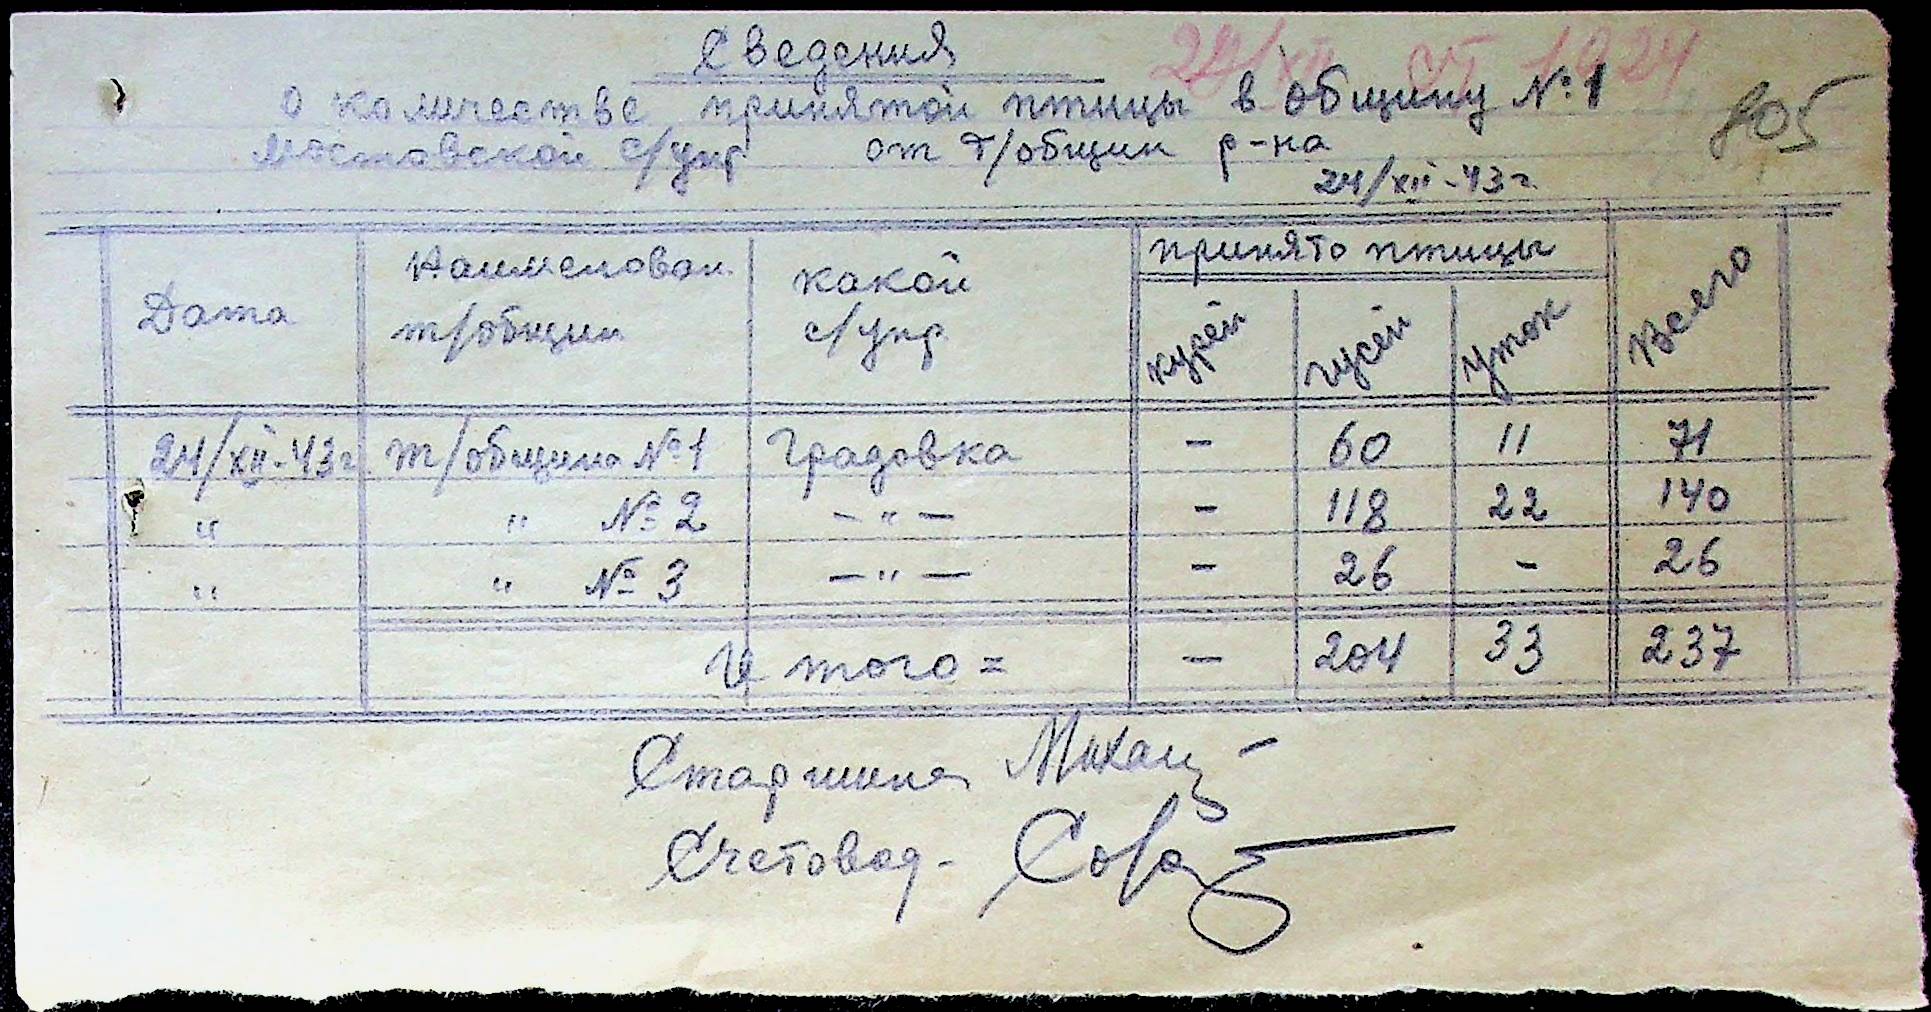 Сведения
о количестве принятой птицы в общину №1
Мостовской с/упр от т/общин р-на
24/XII-43 г.
805
Дата Наименован. т/общин какой с/упр. принято птицы Всего
курей гусей уток
24/XII-43 г. т/община №1 Градовка - 60 11 71
" " №2 -"- - 118 22 140
" " №3 -"- - 26 - 26
Итого = - 204 33 237
Старшина
Счетовод-